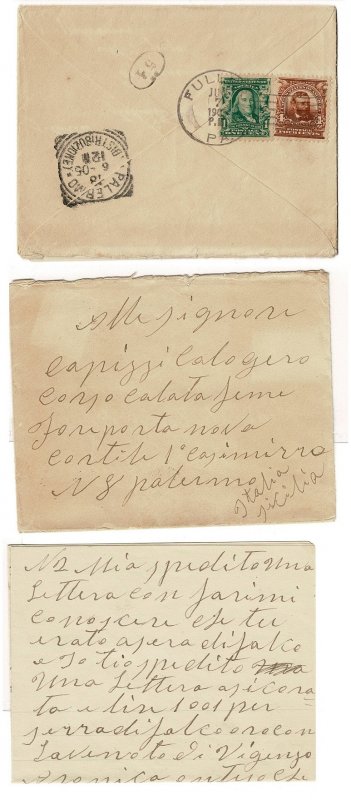 54
FUL
JU
190
PA
PALERMO
(DISTRIBUZIONE)
13
6-05
12M
Alle Signore
Capizzi Calogero
Corso Calatafeme
Fore porta nova
Cortile 1° Casimirro
N 8 palermo
Italia
Sicilia
N2 Mia spedito una
Lettera con farimi
conoscere che tu
erato asera di falco
e Io tio spedito
una Lettera asicora
ta e lire 100 per
serra di falco ora con
La venota di Vigenzo